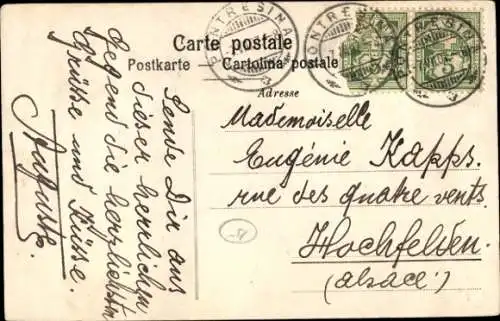 Carte postale
Postkarte Cartolina postale
Adresse
PONTRESINA
PONTRESINA
PONTRESINA
Sende Dir aus
dieser herrlichen
Gegend die herzliebsten
Grüsse und Küsse.
Auguste.
Mademoiselle
Eugénie Kapps.
rue des quatre vents
Hochfelden.
(Alsace.)